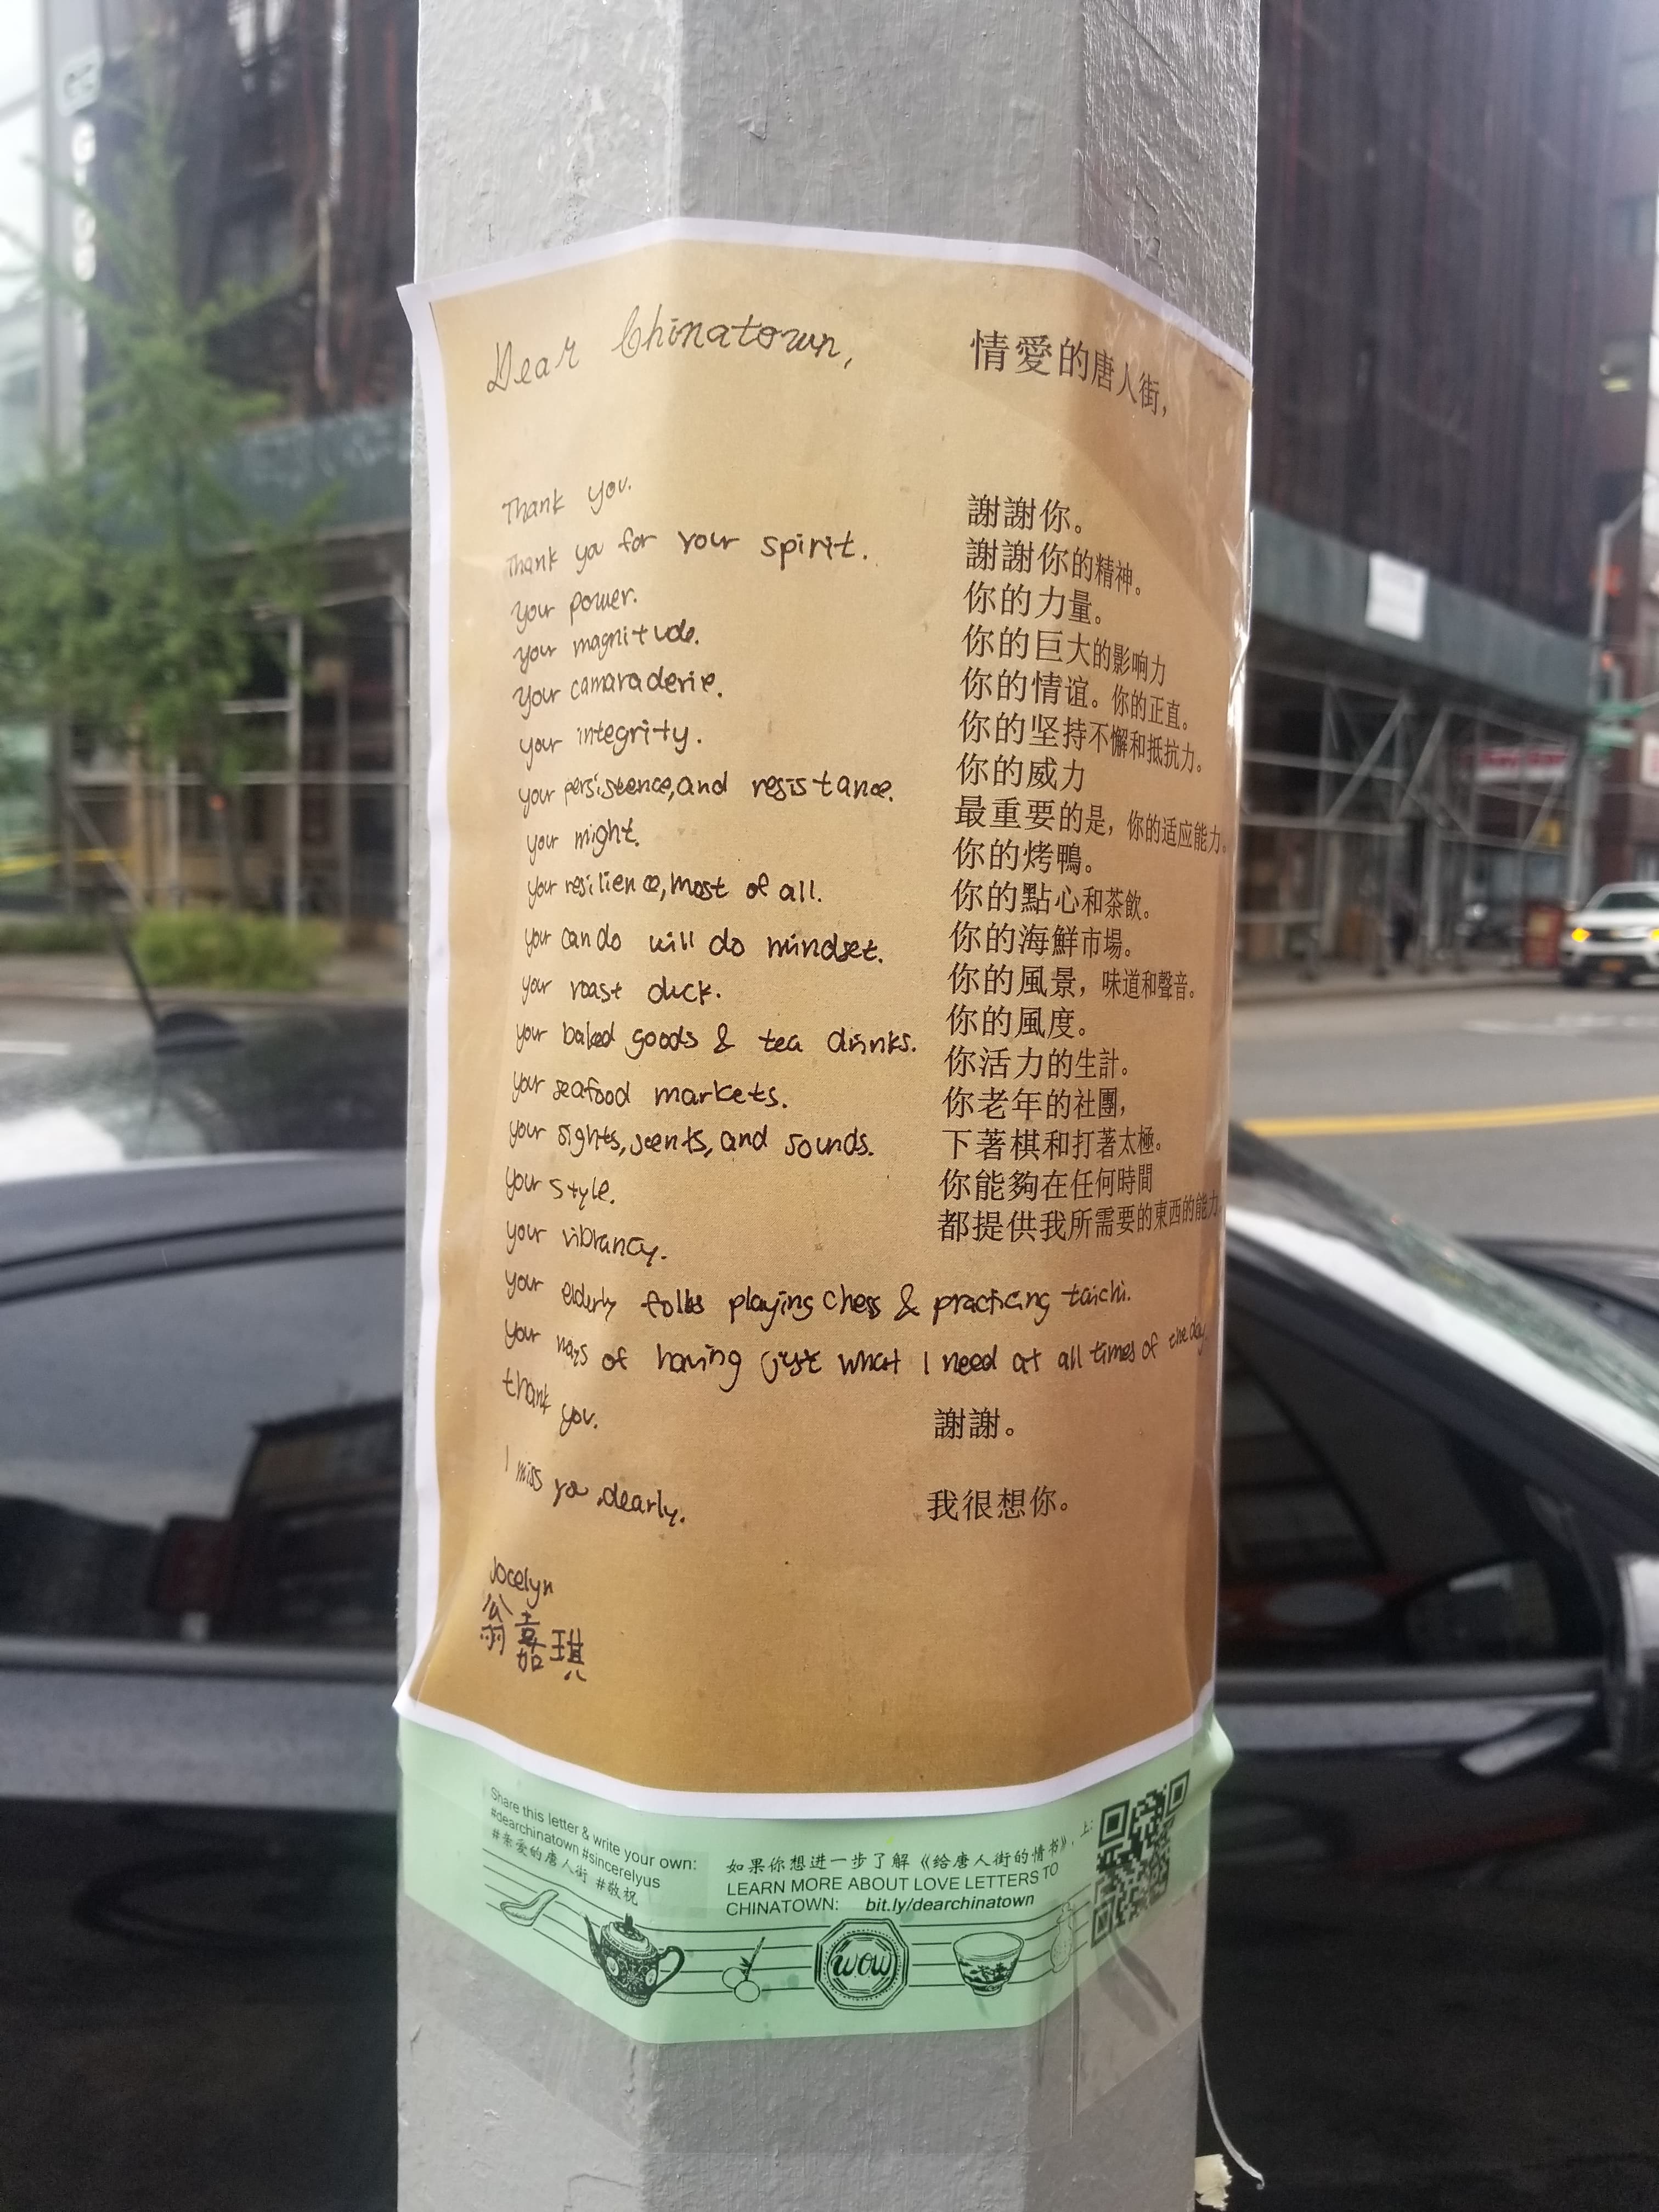 Dear Chinatown,
Thank you.
Thank you for your spirit.
your power.
your magnitude.
your camaraderie.
your integrity.
your persistence, and resistance.
your might.
your resilience, most of all.
your can do will do mindset.
your roast duck.
your baked goods & tea drinks.
your seafood markets.
your sights, scents, and sounds.
your style.
your vibrancy.
your elderly folks playing chess & practicing taichi.
your ways of having just what I need at all times of the day.
thank you.
I miss you dearly.
Jocelyn
翁嘉琪
情愛的唐人街,
謝謝你。
謝謝你的精神。
你的力量。
你的巨大的影响力
你的情谊。你的正直。
你的坚持不懈和抵抗力。
你的威力
最重要的是，你的适应能力。
你的烤鴨。
你的點心和茶飲。
你的海鮮市場。
你的風景，味道和聲音。
你的風度。
你活力的生計。
你老年的社團，
下著棋和打著太極。
你能夠在任何時間
都提供我所需要的東西的能力。
謝謝。
我很想你。
Share this letter & write your own:
#dearchinatown #sincerelyus
#亲爱的唐人街 #敬祝
如果你想进一步了解《给唐人街的情书》，上:
LEARN MORE ABOUT LOVE LETTERS TO
CHINATOWN: bit.ly/dearchinatown
WOW